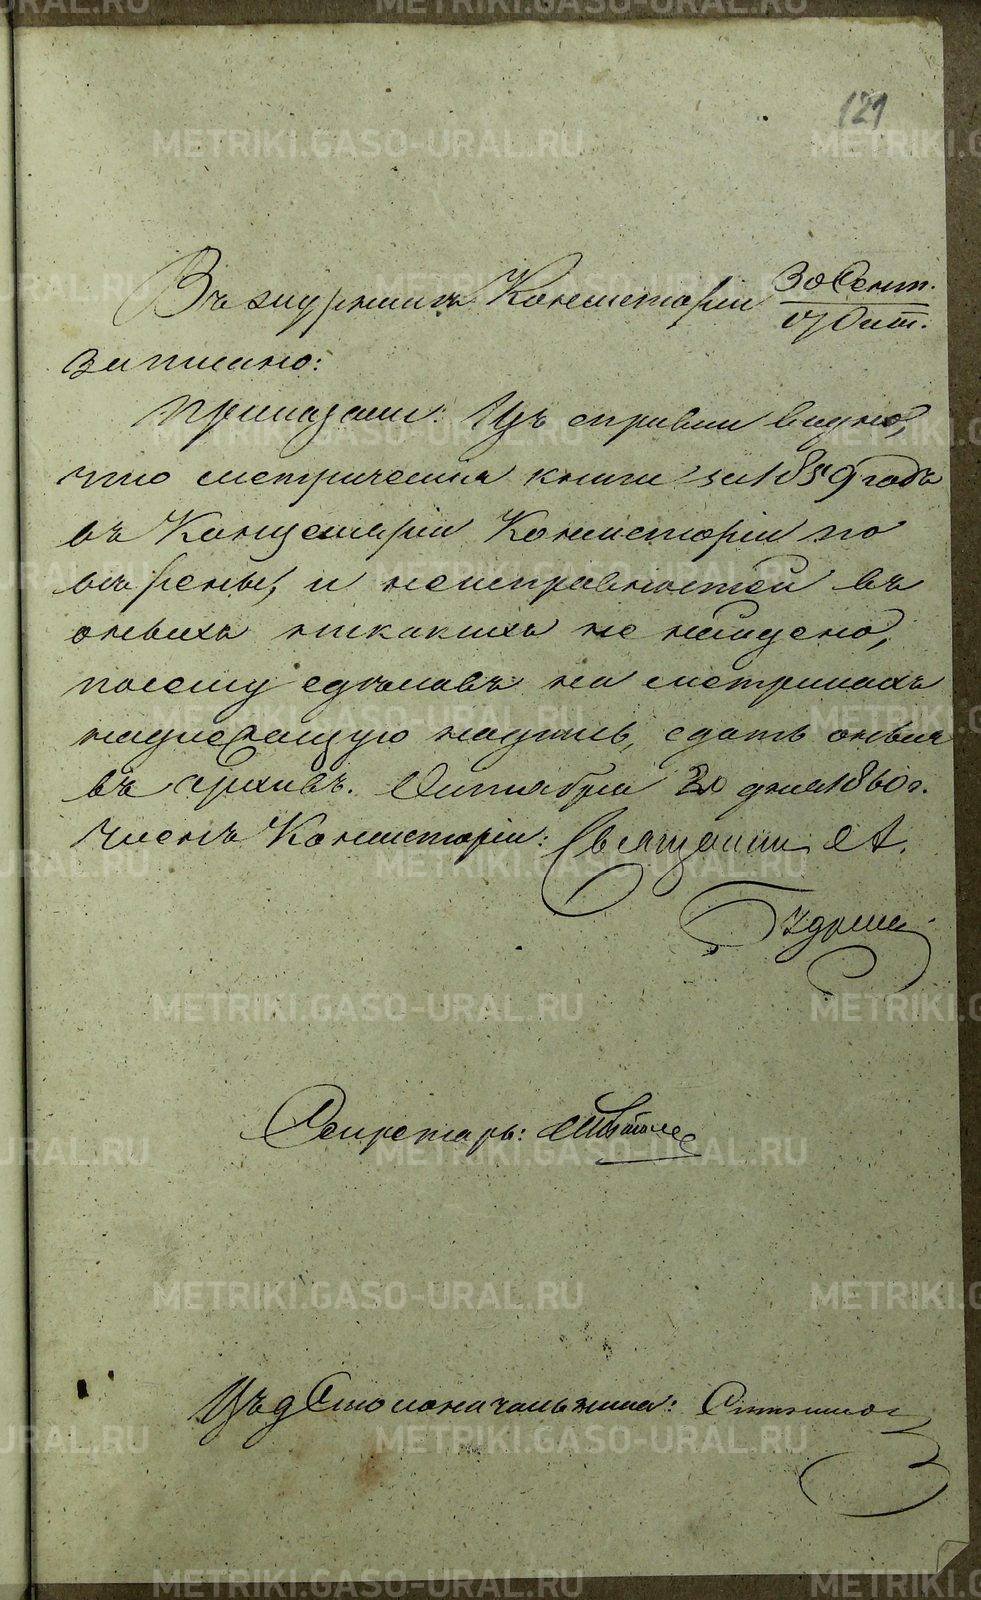 121
Въ журналѣ Консисторіи 30 Сент.
17 Окт.
записано:
Приказали: Изъ справки видно,
что метрическія книги за 1859 годъ
въ Канцеляріи Консисторіи по
вѣрены, и неисправностей въ
оныхъ никакихъ не найдено,
посему сдѣлавъ на метрикахъ
надлежащую надпись, сдать оныя
въ архивъ. Октября дня 1860 г.
Членъ Консисторіи: Священникъ А.
Секретарь:
Столоначальника:
METRIKI.GASO-URAL.RU